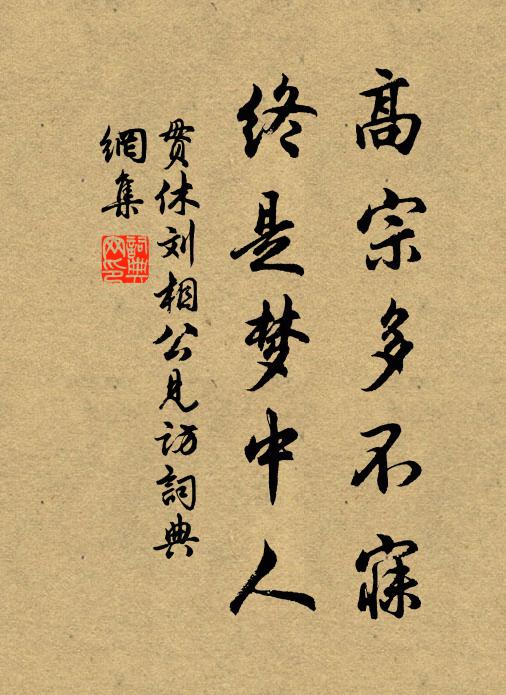 高宗多不寐
终是梦中人
贯休刘相公见访詞典
網集
詞典
网印